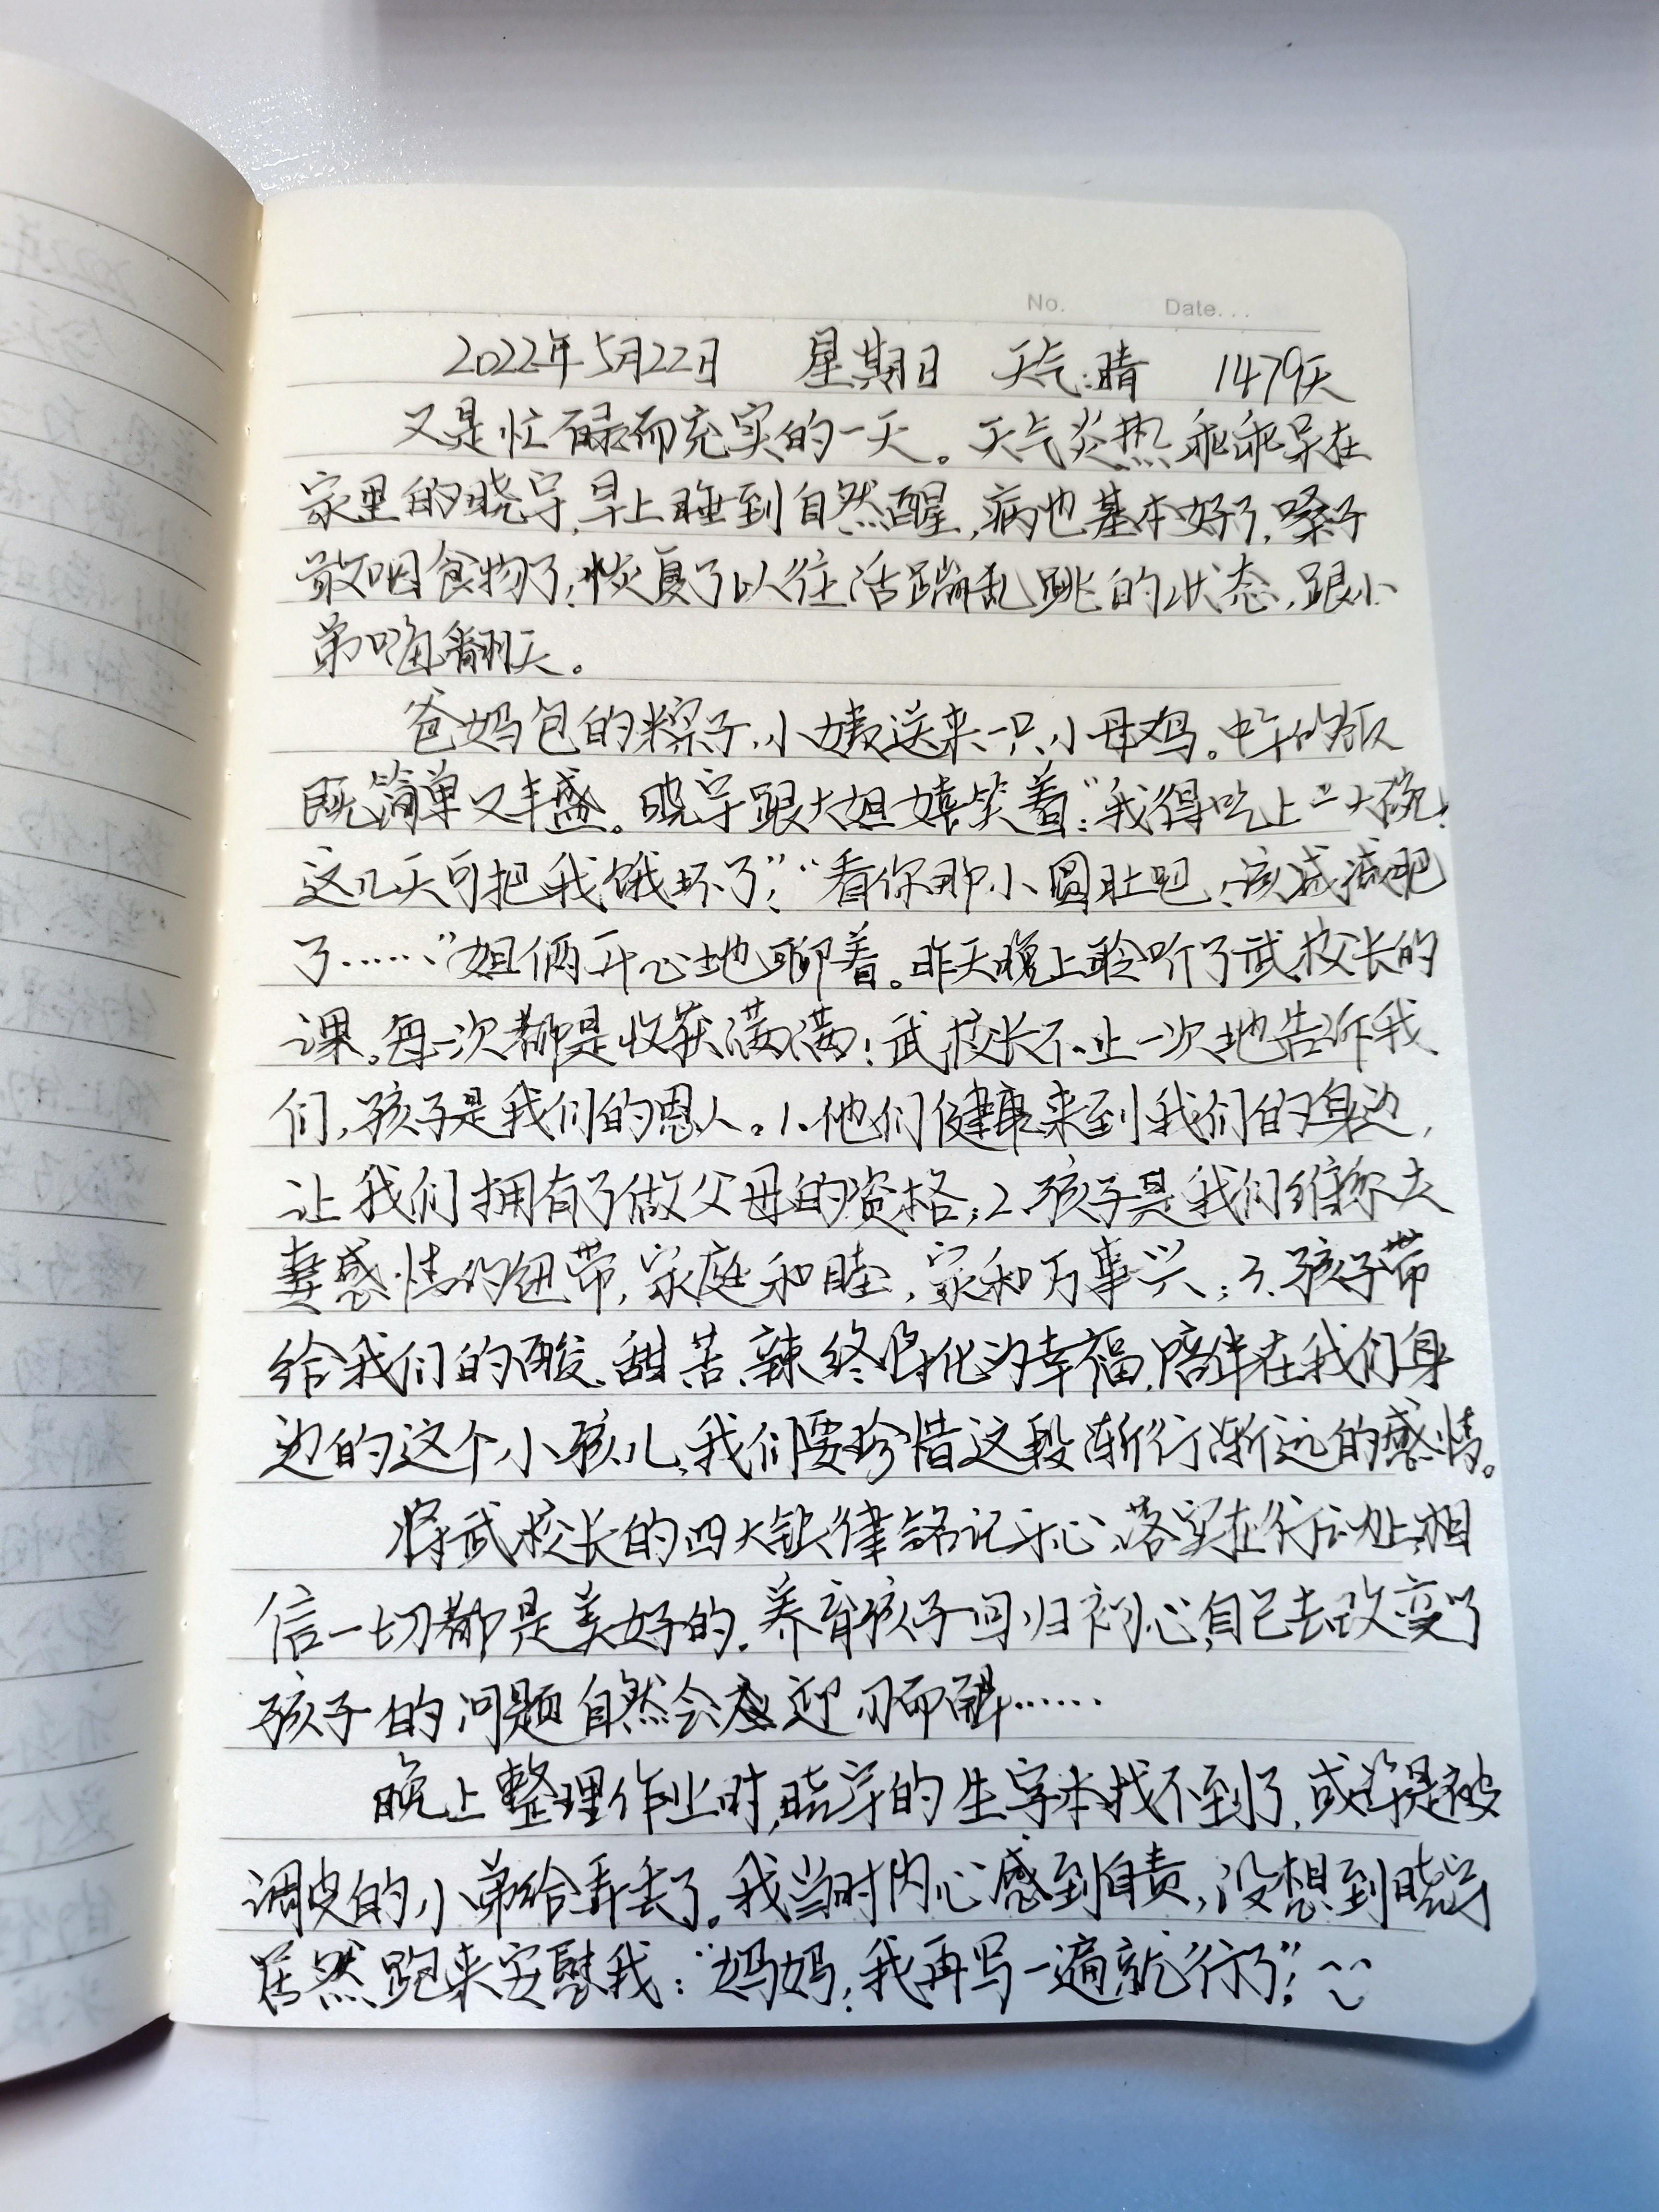 No. Date...
2022年5月22日 星期日 天气:晴 1479天
又是忙碌而充实的一天。天气炎热乖乖呆在
家里的晓宇,早上睡到自然醒,病也基本好了,嗓子
敢咽食物了;恢复了以往活蹦乱跳的状态,跟小
弟嗨翻天。
爸妈包的粽子,小姨送来一只小母鸡。中午的饭
既简单又丰盛。晓宇跟大姐嬉笑着:“我得吃上二大碗!
这几天可把我饿坏了”;“看你那小圆肚吧,该减减肥
了……”姐俩开心地聊着。昨天晚上聆听了武校长的
课。每一次都是收获满满!武校长不止一次地告诉我
们,孩子是我们的恩人。1.他们健康来到我们的身边,
让我们拥有了做父母的资格;2.孩子是我们维系夫
妻感情的纽带,家庭和睦,家和万事兴;3.孩子带
给我们的酸、甜、苦、辣终将化为幸福,陪伴在我们身
边的这个小孩儿,我们要珍惜这段渐行渐远的感情。
将武校长的四大铁律铭记于心,落实在行动上,相
信一切都是美好的。养育孩子回归初心,自己去改变了
孩子的问题自然会迎刃而解……
晚上整理作业时,晓宇的生字本找不到了,或许是被
调皮的小弟给弄丢了。我当时内心感到自责,没想到晓宇
居然跑来安慰我:“妈妈,我再写一遍就行了”;